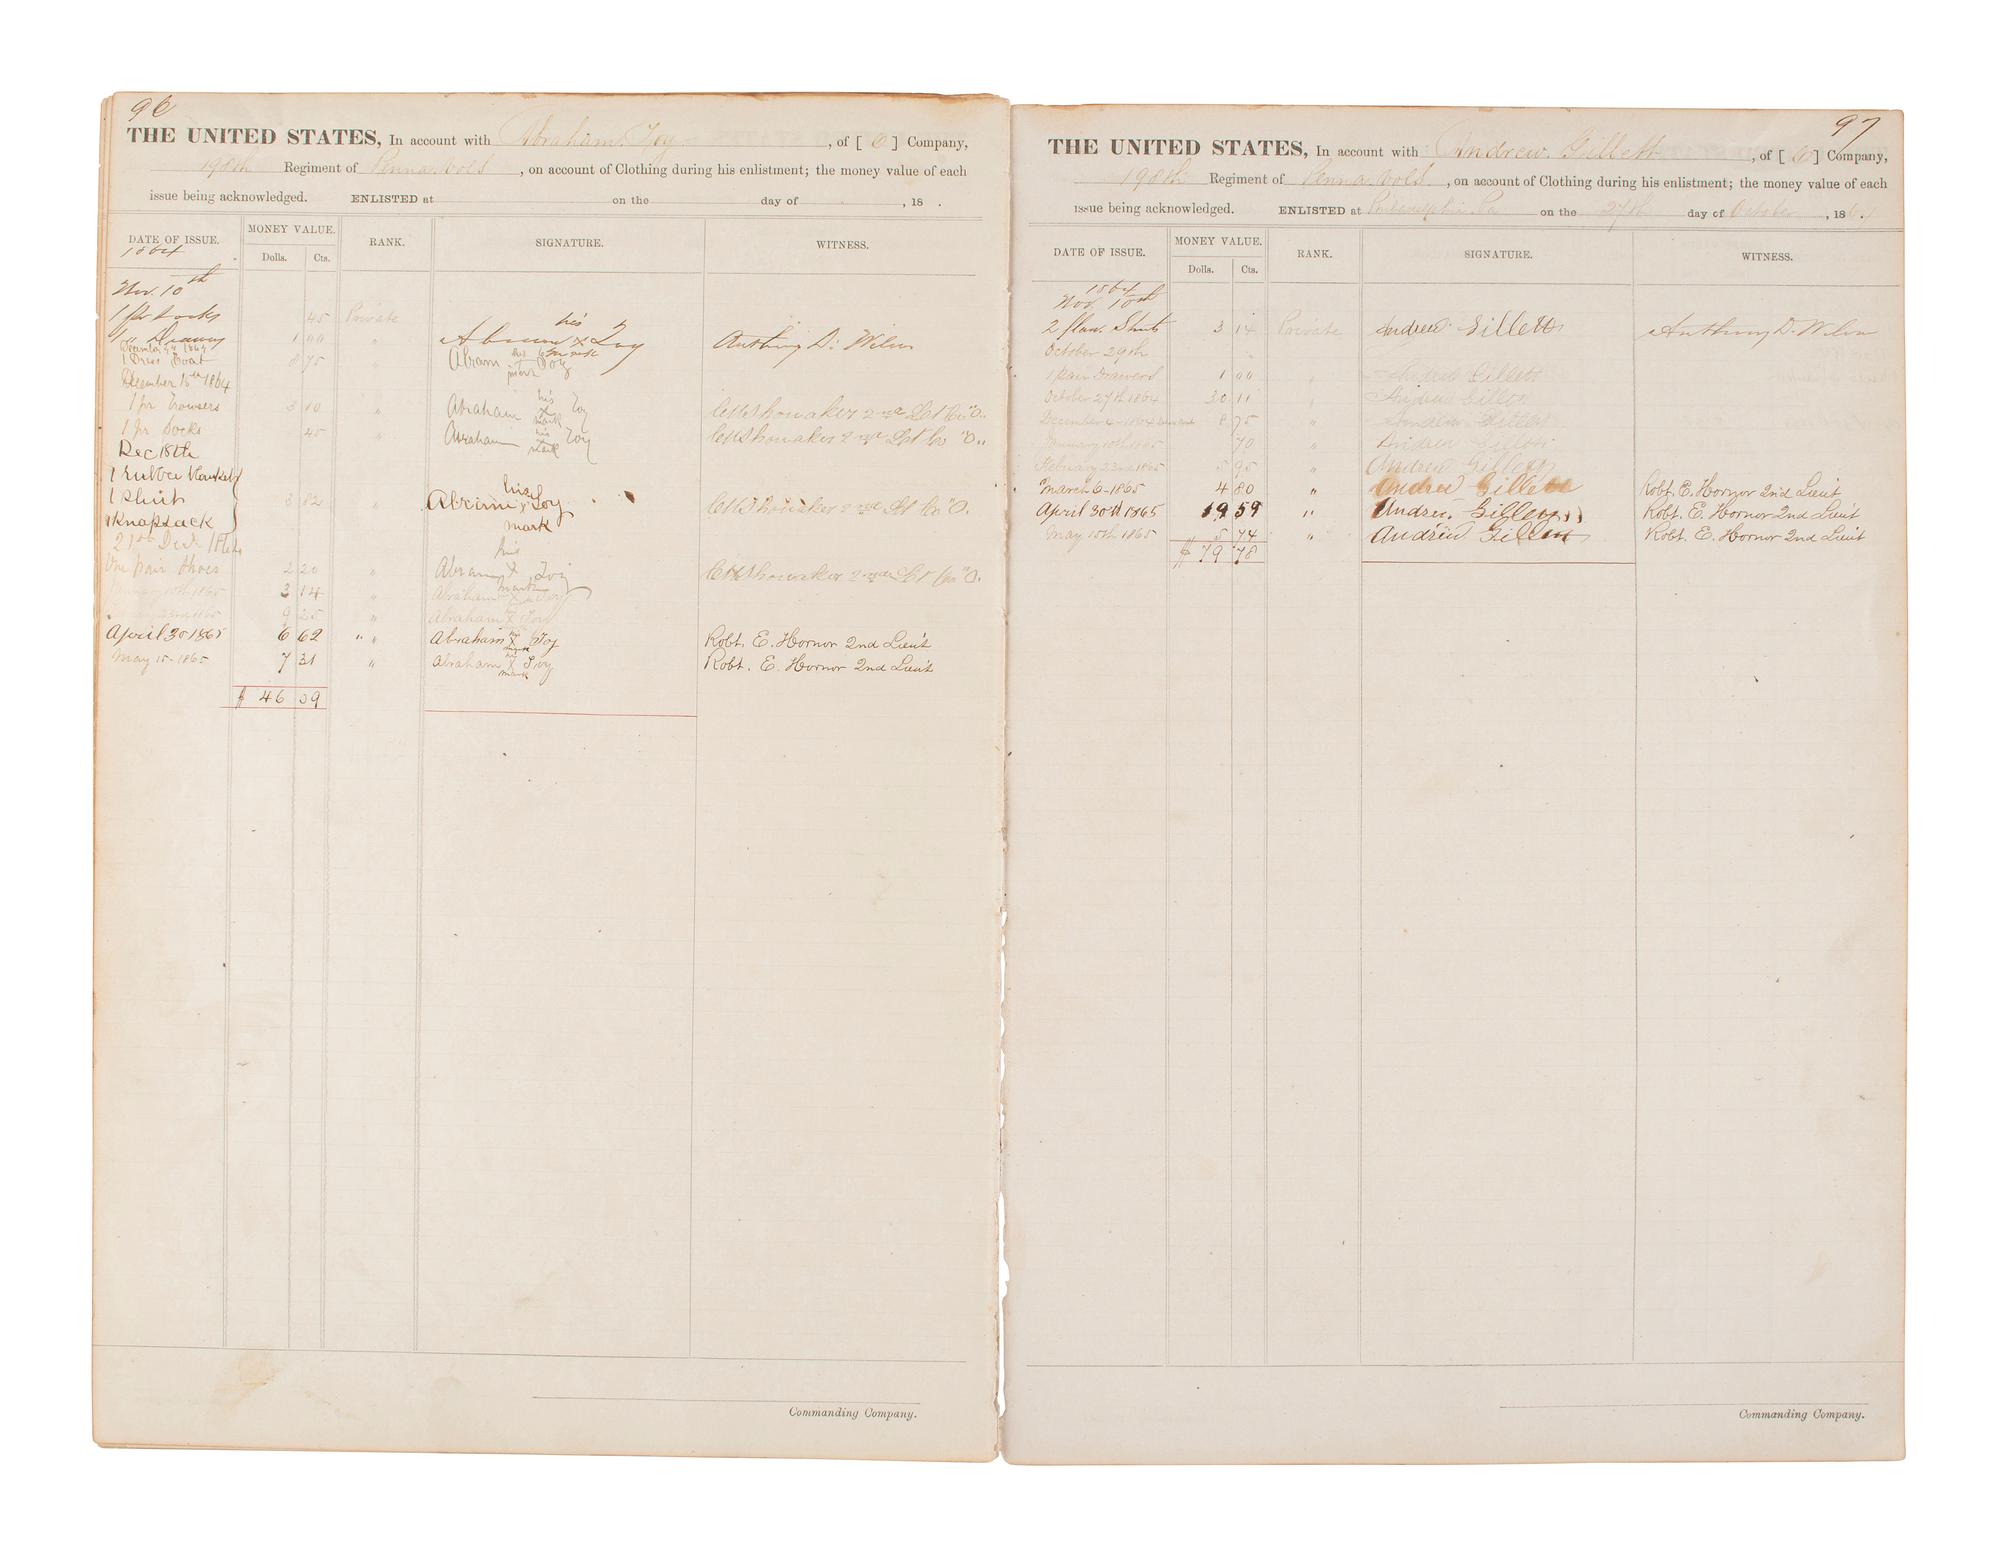 96
THE UNITED STATES, In account with Abraham Toy, of [ O ] Company,
198th Regiment of Penna. Vols, on account of Clothing during his enlistment; the money value of each
issue being acknowledged. ENLISTED at on the day of , 18 .
DATE OF ISSUE. MONEY VALUE. RANK. SIGNATURE. WITNESS.
Dolls. Cts.
1864
Nov. 10th
1 pr Socks 45 Private
1 " Drawers 1 00 " Abram his x mark Toy Anthony D. Wilson
December 4th 1864
1 Dress Coat 8 75 " Abram his mark Toy
December 15th 1864
1 pr Trowsers 3 10 " Abraham his x mark Toy C H Showaker 2nd Lt Co "O.
1 pr Socks 45 " Abraham his x mark Toy C H Showaker 2nd Lt Co "O.
Dec 18th
1 rubber blanket
1 Shirt 3 82 Abram his x mark Toy C H Showaker 2nd Lt Co "O.
1 Knapsack
21st Dec. 1864
One pair Shoes 2 20 " Abram his x mark Toy C H Showaker 2nd Lt Co "O.
January 10th 1865 3 14 " Abraham x Toy
23rd 1865 9 25 " Abraham x Toy
April 30 1865 6 62 " " Abraham his x mark Toy Robt. E. Hornor 2nd Lieut
May 15-1865 7 31 " Abraham his x mark Toy Robt. E. Hornor 2nd Lieut
$ 46 09
Commanding Company.
97
THE UNITED STATES, In account with Andrew Gillett, of [ O ] Company,
198th Regiment of Penna. Vols., on account of Clothing during his enlistment; the money value of each
issue being acknowledged. ENLISTED at Philadelphia Pa on the 27th day of October, 1864.
DATE OF ISSUE. MONEY VALUE. RANK. SIGNATURE. WITNESS.
Dolls. Cts.
1864
Nov. 10th
2 flan. Shirts 3 14 Private Andrew Gillett Anthony D. Wilson
October 29th
1 pair Drawers 1 00 " Andrew Gillett
October 27th 1864 30 11 " Andrew Gillett
December 4-1864 8 75 " Andrew Gillett
January 10th 1865 70 " Andrew Gillett
February 23rd 1865 5 95 " Andrew Gillett
March 6-1865 4 80 " Andrew Gillett Robt. E. Hornor 2nd Lieut
April 30th 1865 19 59 " Andrew Gillett Robt. E. Hornor 2nd Lieut
May 15th 1865 5 74 " Andrew Gillett Robt. E. Hornor 2nd Lieut
$ 79 78
Commanding Company.